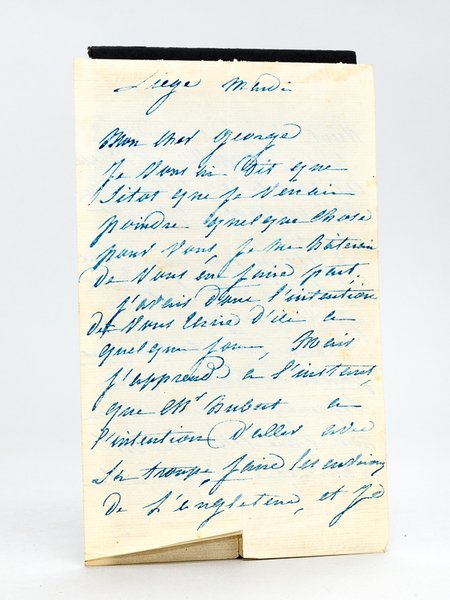 Liège Mardi
Mon cher George
Je vous ai Dit que
Sitot que je verrai
poindre quelque chose
pour vous, je me hâterai
de vous en faire part,
j'avais donc l'intention
de vous écrire d'ici a
quelque jour, Mais
j'apprend a l'instant,
que Mr Hubert a
l'intention d'aller avec
Sa troupe, faire les environs
de L'engleterre, et je